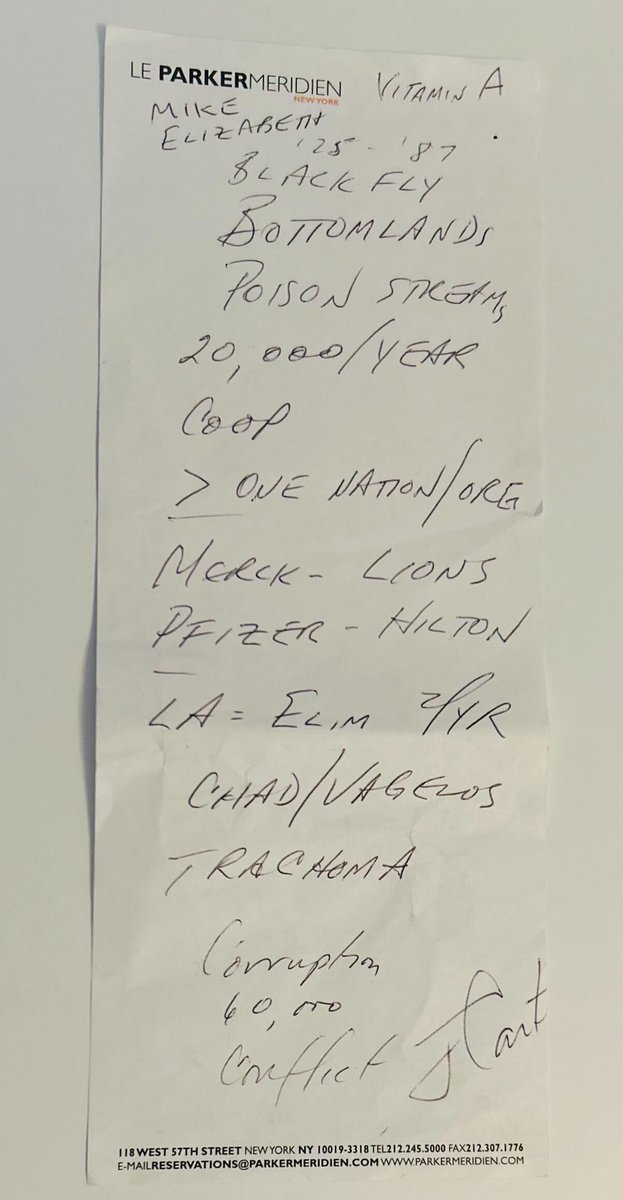 LE PARKERMERIDIEN
NEW YORK
VITAMIN A
MIKE
ELIZABETH
'25 - '87
BLACK FLY
BOTTOMLANDS
POISON STREAMS
20,000/YEAR
COOP
> ONE NATION/ORG
MERCK - LIONS
PFIZER - HILTON
LA = ELIM 2/YR
CHAD/VAGELOS
TRACHOMA
Corruption
60,000
Conflict
118 WEST 57TH STREET NEW YORK NY 10019-3318 TEL212.245.5000 FAX212.307.1776
E-MAILRESERVATIONS@PARKERMERIDIEN.COM WWW.PARKERMERIDIEN.COM